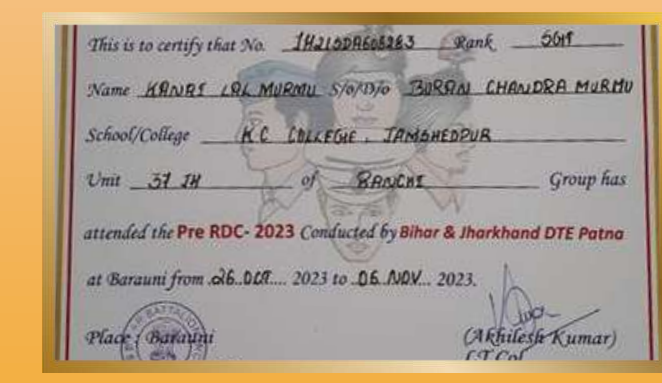 This is to certify that No. JH21SDA608283 Rank SGT
Name KANAI LAL MURMU S/o/D/o BURAN CHANDRA MURMU
School/College K C COLLEGE, JAMSHEDPUR
Unit 37 JH of RANCHI Group has
attended the Pre RDC- 2023 Conducted by Bihar & Jharkhand DTE Patna
at Barauni from 26 OCT.... 2023 to 06 NOV... 2023.
Place : Barauni (Akhilesh Kumar)
LT Col